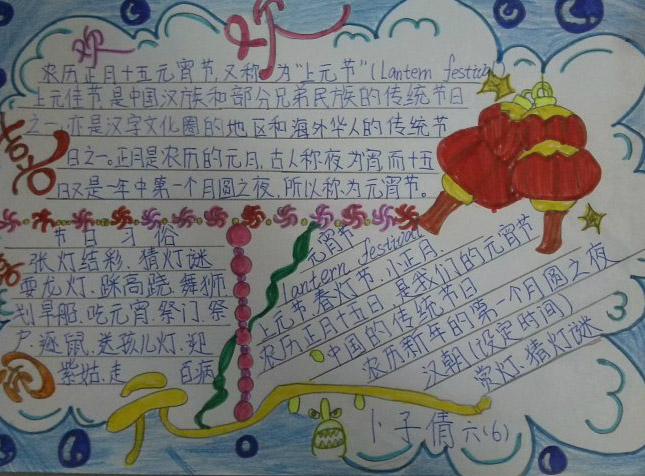 欢
农历正月十五元宵节,又称为“上元节”(Lantern festival
上元佳节,是中国汉族和部分兄弟民族的传统节日
之一,亦是汉字文化圈的地区和海外华人的传统节
日之一。正月是农历的元月,古人称夜为宵,而十五
日又是一年中第一个月圆之夜,所以称为元宵节。
喜
节日习俗
张灯结彩、猜灯谜
耍龙灯、踩高跷、舞狮
划旱船、吃元宵、祭门、祭
户、逐鼠、送孩儿灯、迎
紫姑、走百病
元宵节
Lantern festival
上元节、春灯节、小正月、
农历正月十五日 是我们的元宵节
中国的传统节日
农历新年的第一个月圆之夜
汉朝(设定时间)
赏灯、猜灯谜
元
卜子倩六(6)